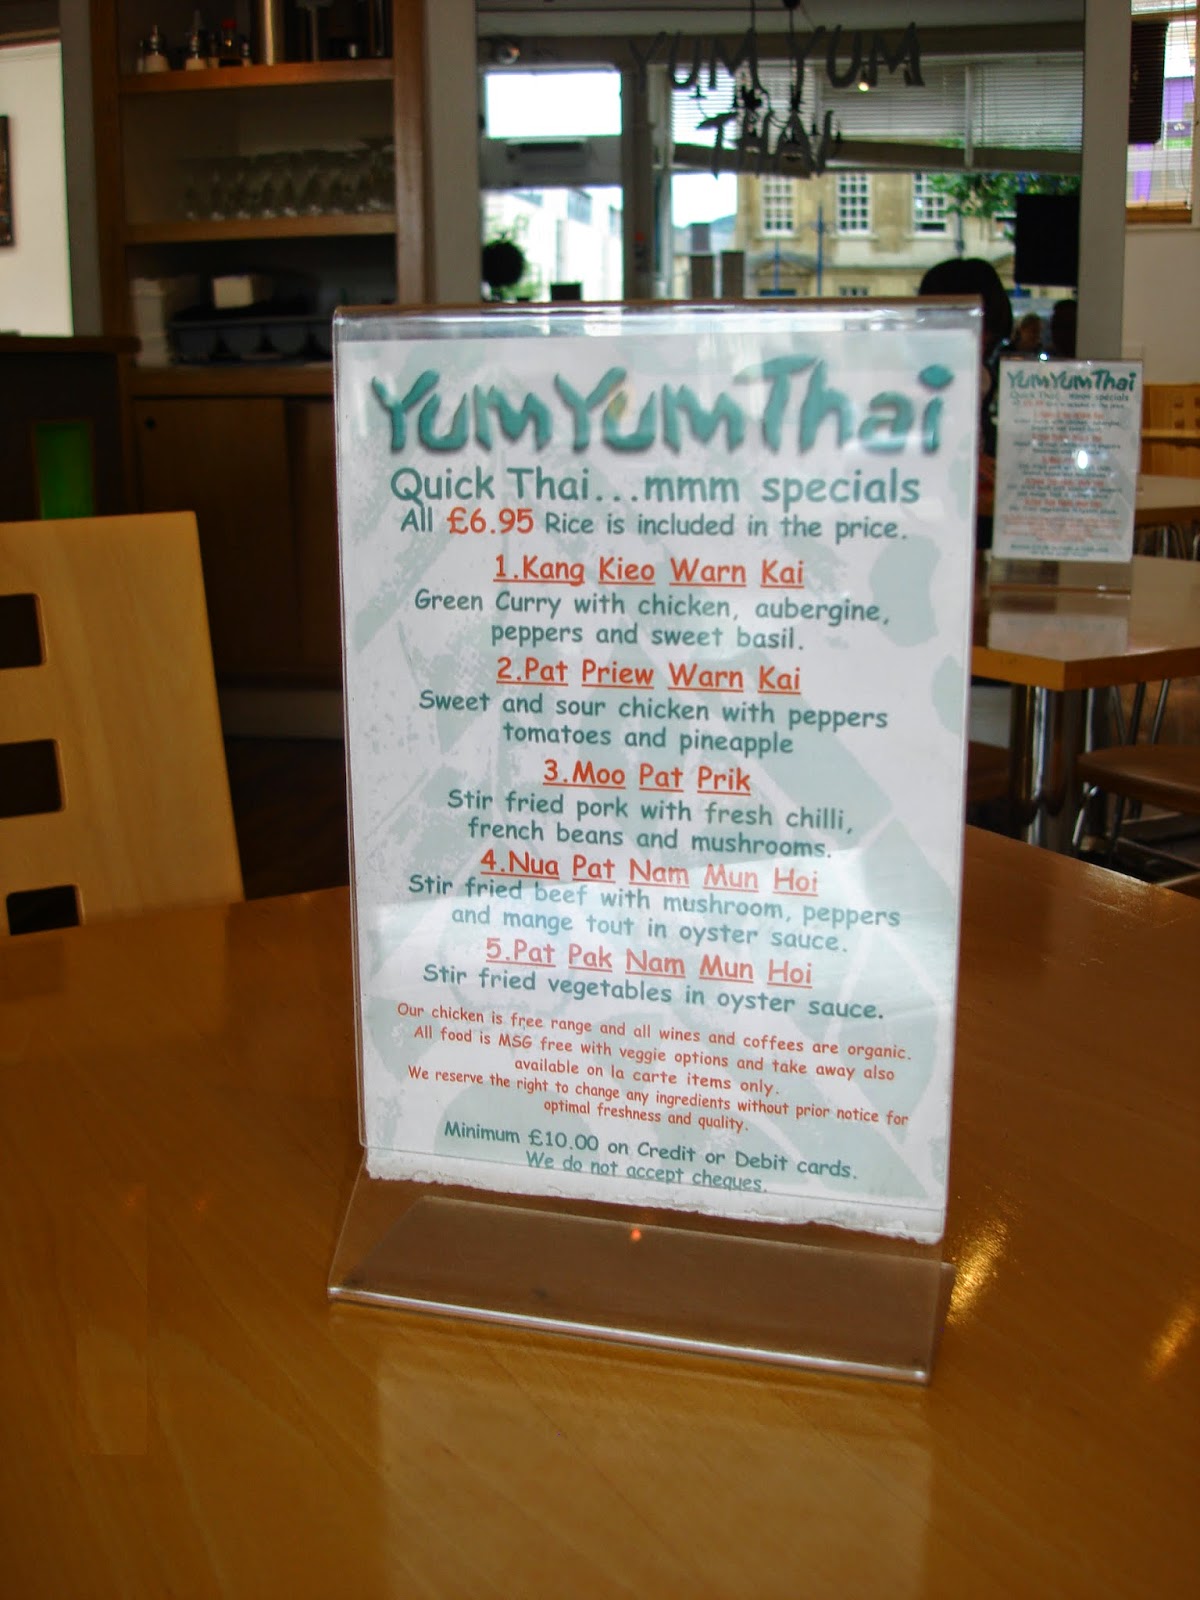 YUM YUM
THAI
YumYumThai
Quick Thai...mmm specials
All £6.95 Rice is included in the price.
1.Kang Kieo Warn Kai
Green Curry with chicken, aubergine,
peppers and sweet basil.
2.Pat Priew Warn Kai
Sweet and sour chicken with peppers
tomatoes and pineapple
3.Moo Pat Prik
Stir fried pork with fresh chilli,
french beans and mushrooms.
4.Nua Pat Nam Mun Hoi
Stir fried beef with mushroom, peppers
and mange tout in oyster sauce.
5.Pat Pak Nam Mun Hoi
Stir fried vegetables in oyster sauce.
Our chicken is free range and all wines and coffees are organic.
All food is MSG free with veggie options and take away also
available on la carte items only.
We reserve the right to change any ingredients without prior notice for
optimal freshness and quality.
Minimum £10.00 on Credit or Debit cards.
We do not accept cheques.
YumYumThai
Quick Thai...mmm specials